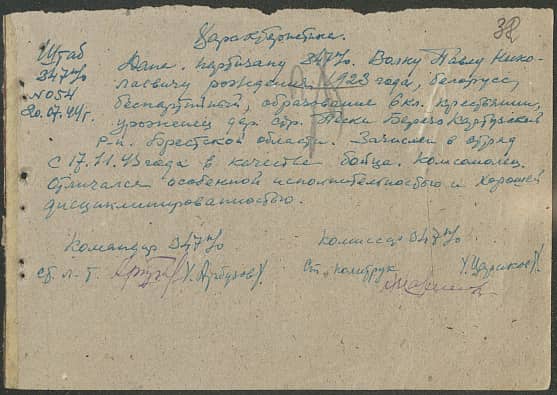 32
Характеристика.
Штаб
347 п/о
№ 054
20.07.44 г.
Дана. партизану 347 п/о. Волку Павлу Нико-
лаевичу рождения 1923 года, белорусс,
беспартийный, образование 6 кл. крестьянин,
уроженец дер. стр. Пески Березо Картузской
р-н. Брестской области. Зачислен в отряд
с 17.11.43 года в качестве бойца. Комсомолец.
Отличался особенной исполнительностью и хорошей
дисциплинированостью.
Командир 347 п/о
ст. л-т. /Арбузов/.
Комиссар 347 п/о
Ст. политрук /Цариков/.